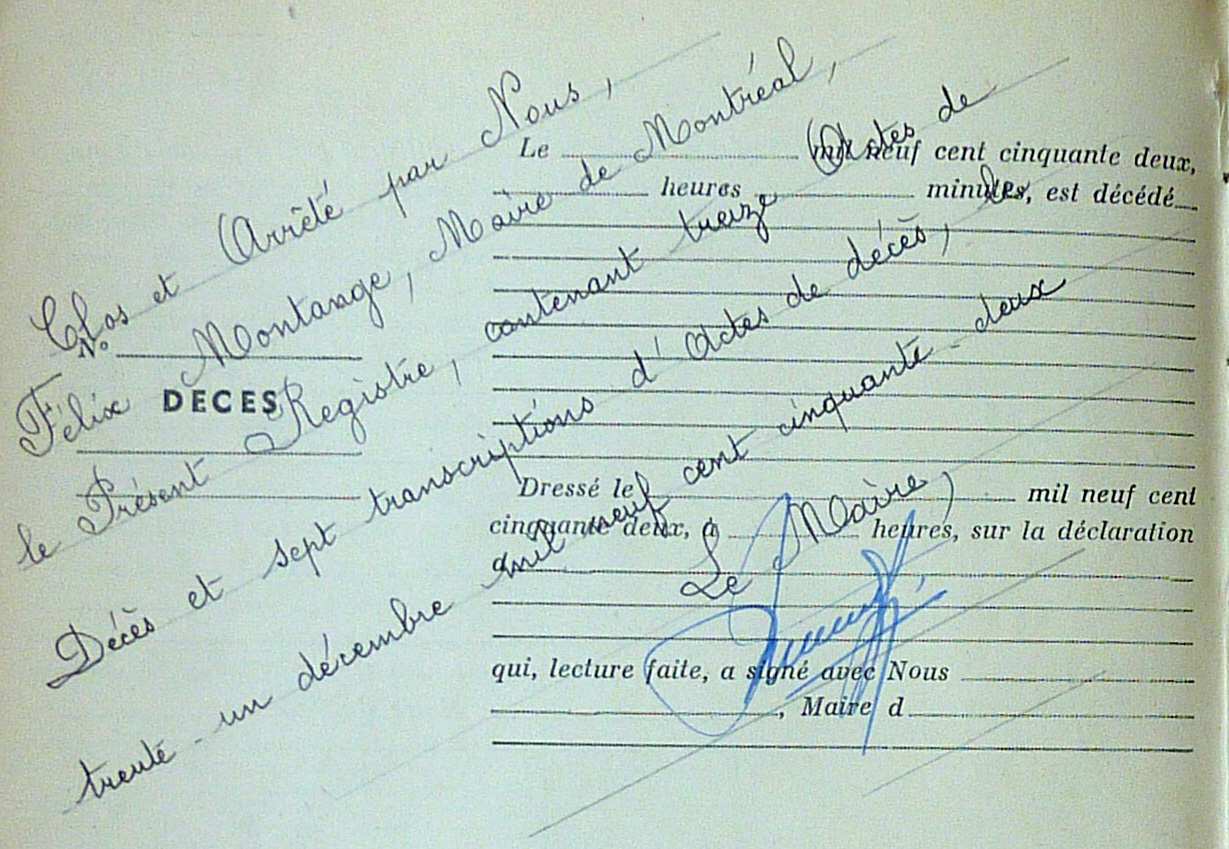 Clos et Arrêté par Nous,
Félix Montange, Maire de Montréal,
le Présent Registre, contenant treize Actes de
Décès et sept transcriptions d'Actes de décès, le
trente-un décembre mil neuf cent cinquante-deux
Le Maire,
N°
DECES
Le mil neuf cent cinquante deux,
heures minutes, est décédé
Dressé le mil neuf cent
cinquante deux, à heures, sur la déclaration
d
qui, lecture faite, a signé avec Nous
, Maire d